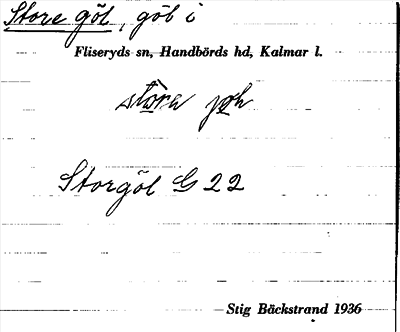 Store göl, göl i
Fliseryds sn, Handbörds hd, Kalmar l.
stora
Storgöl G 22
Stig Bäckstrand 1936